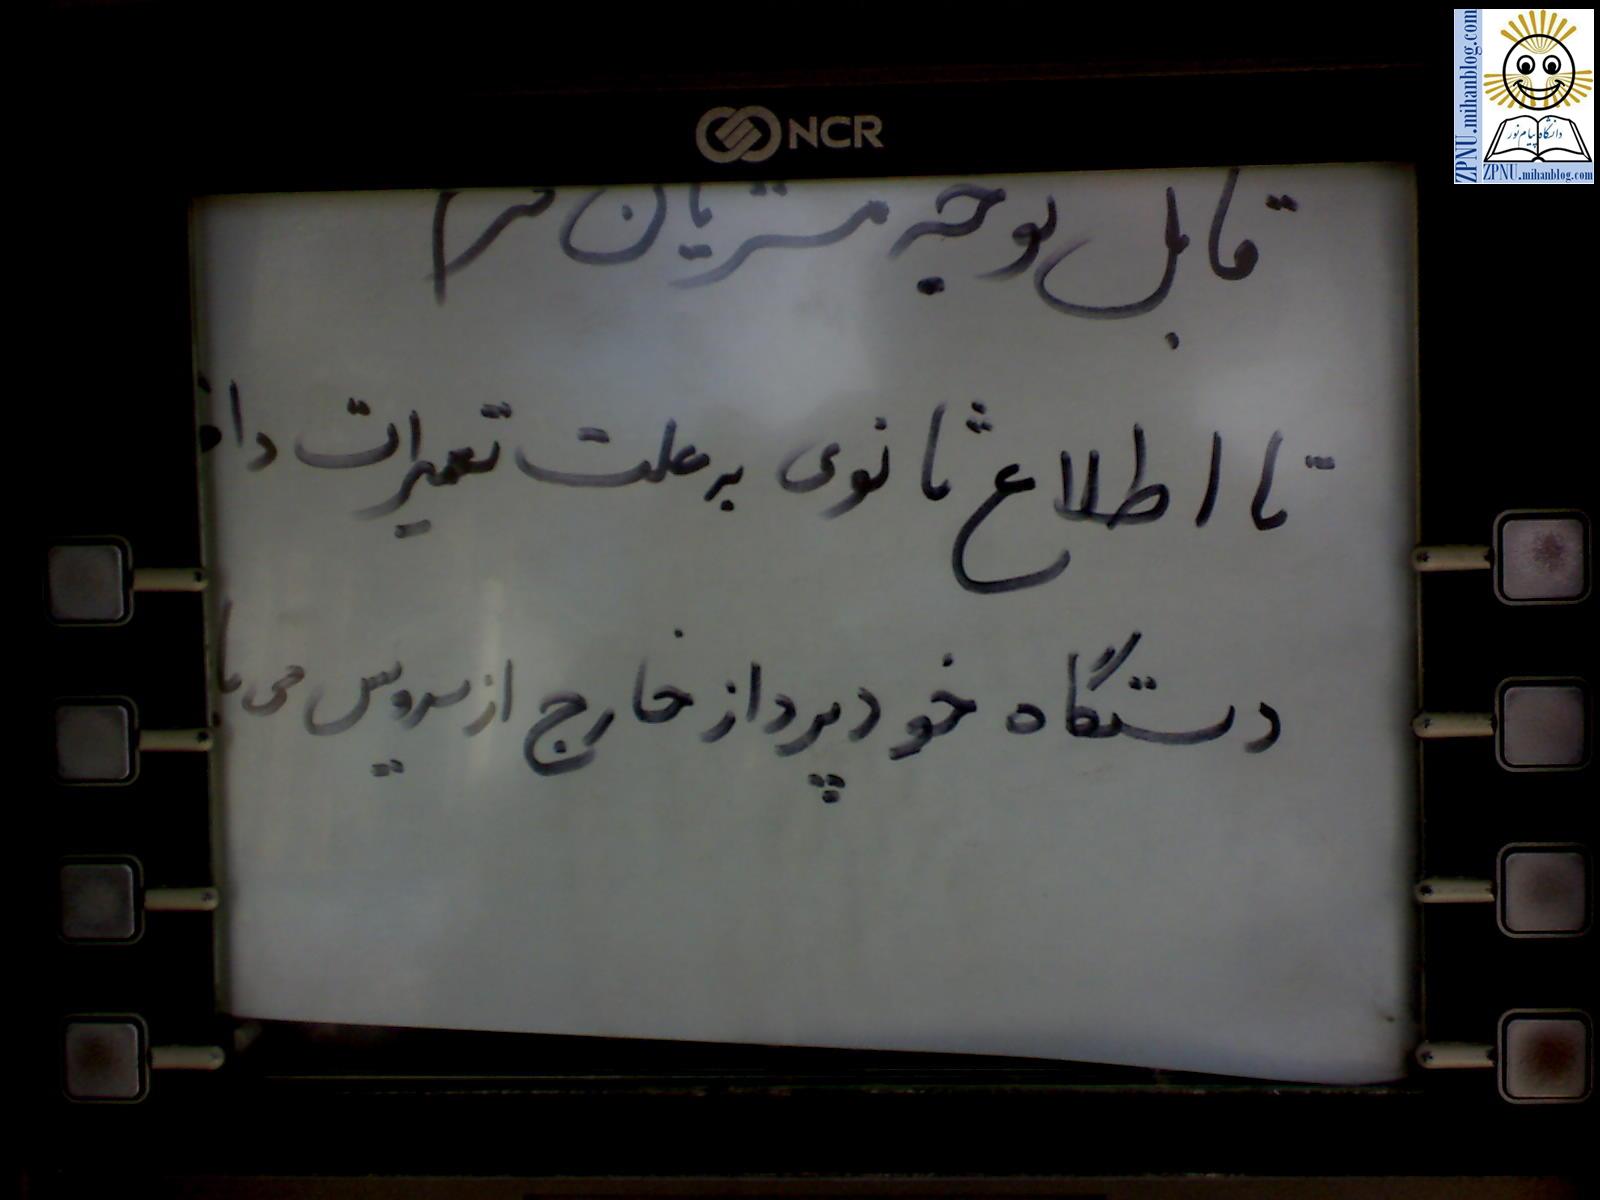 NCR
قابل توجه مشتریان
تا اطلاع ثانوی به علت تعمیرات
دستگاه خودپرداز خارج از سرویس می
ZPNU.mihanblog.com
دانشگاه پیام نور
ZPNU.mihanblog.com